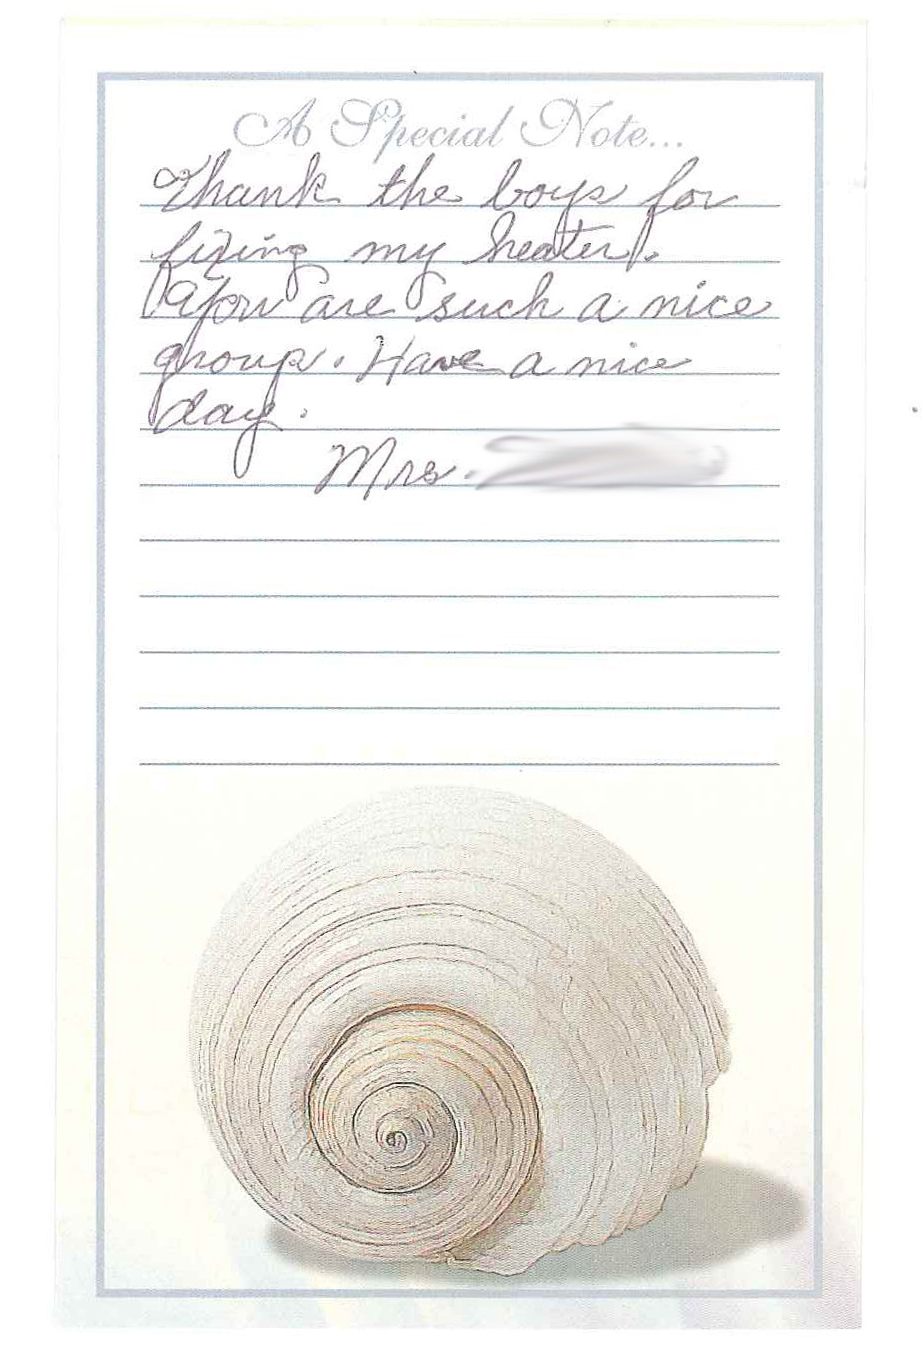 A Special Note...
Thank the boys for
fixing my heater.
You are such a nice
group. Have a nice
day.
Mrs.